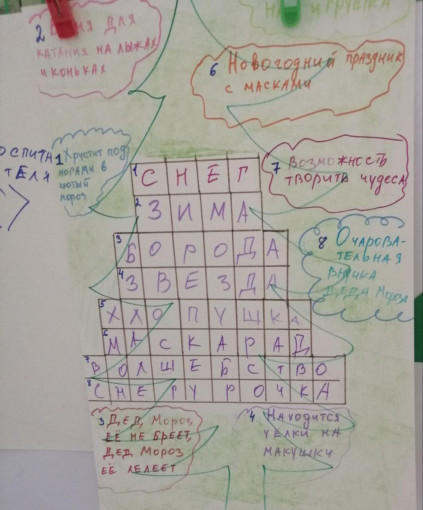 2
ДЛЯ
КАТАНИЯ НА ЛЫЖАХ
И КОНЬКАХ
ИГРУШКА
6 Новогодний праздник
с масками
1 Хрустит под
ногами в
лютый
мороз
7 Возможность
творить чудеса
8 Очарова-
тельная
внучка
Деда Мороза
1 СНЕГ
2 ЗИМА
3 БОРОДА
4 ЗВЕЗДА
5 ХЛОПУШКА
6 МАСКАРАД
7 ВОЛШЕБСТВО
8 СНЕГУРОЧКА
3 Дед Мороз
ЕЁ НЕ БРЕЕТ,
ДЕД МОРОЗ
ЕЁ ЛЕЛЕЕТ
4 Находится
у ёлки на
макушки